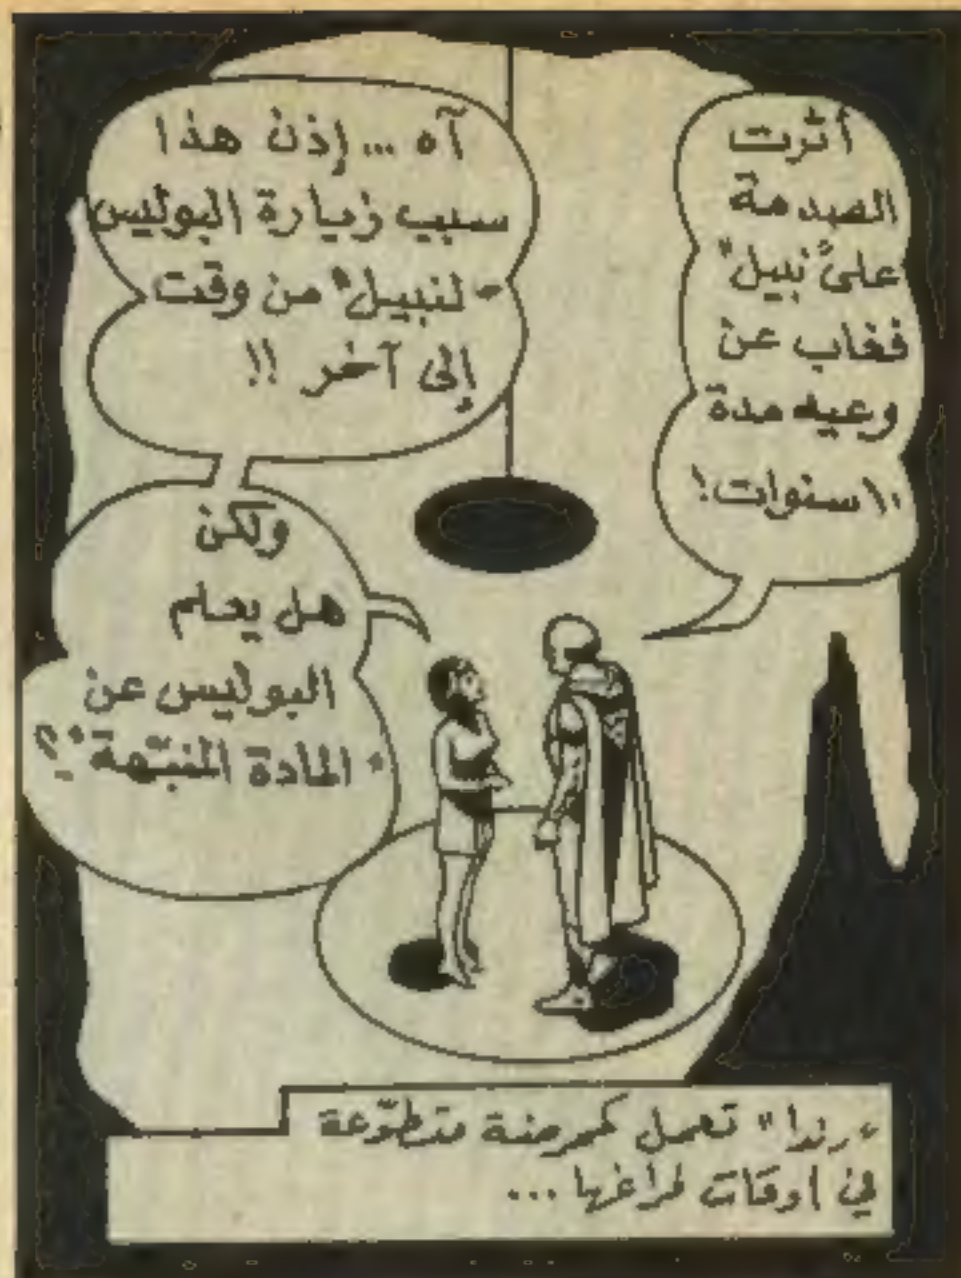 أثرت
الصدمة
على "نبيل"
فغاب عن
وعيه مدة
١٠ سنوات!
آه ... إذن هذا
سبب زيارة البوليس
"لنبيل" من وقت
إلى آخر !!
ولكن
هل يعلم
البوليس عن
"المادة المنبّهة"؟
"رندا" تعمل كممرضة متطوّعة
في أوقات فراغها ...